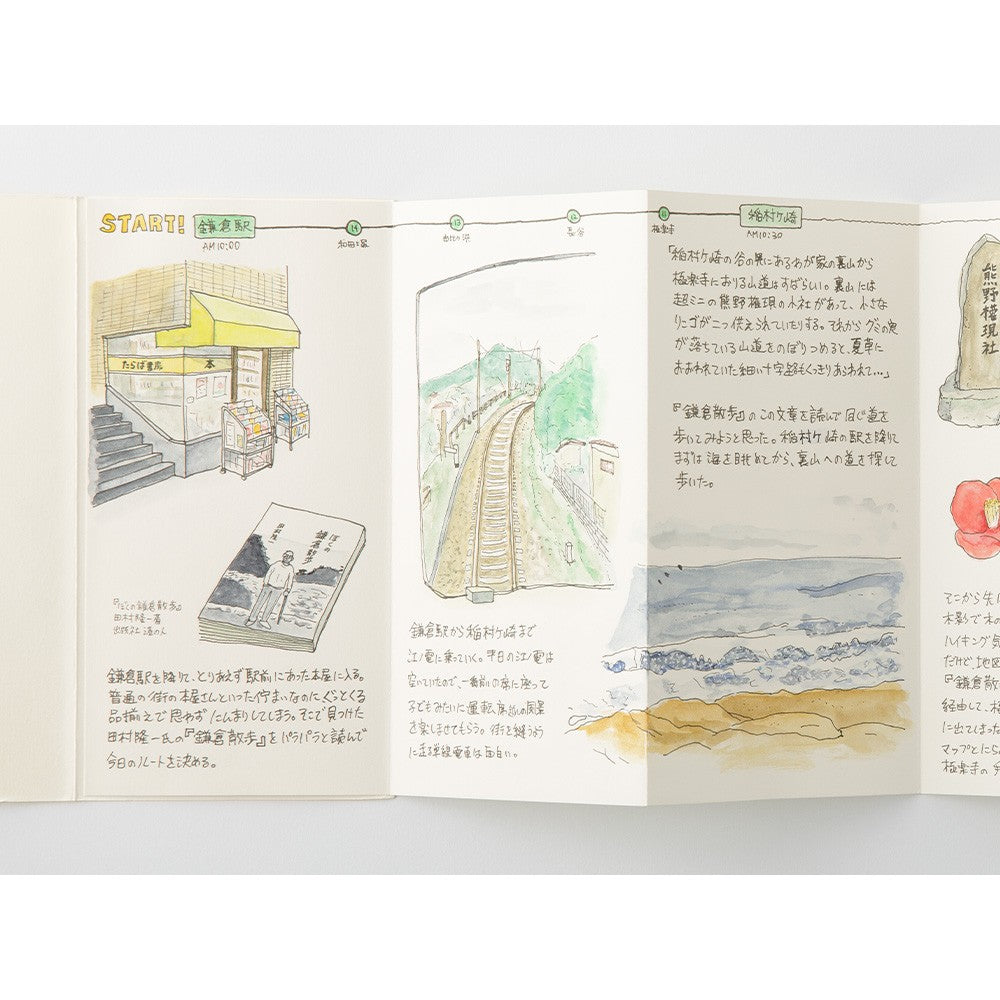 START! 鎌倉駅
AM10:00
14
和田塚
13
由比ヶ浜
12
長谷
11
極楽寺
稲村ケ崎
AM10:30
たらば書房 本
ぼくの
鎌倉散歩
田村隆一
『ぼくの鎌倉散歩』
田村隆一著
出版社 港の人
鎌倉駅を降りて、とりあえず駅前にあった本屋に入る。
普通の街の本屋さんといった佇まいなのにぐっとくる
品揃えで思わずにんまりしてしまう。そこで見つけた
田村隆一氏の『鎌倉散歩』をパラパラと読んで
今日のルートを決める。
鎌倉駅から稲村ケ崎まで
江ノ電に乗っていく。平日の江ノ電は
空いていたので、一番前の席に座って
子どもみたいに運転席越しの風景
を楽しませてもらう。街を縫うよう
に走る単線電車は面白い。
「稲村ケ崎の谷の奥にあるわが家の裏山から
極楽寺におりる山道はすばらしい。裏山には
超ミニの熊野権現の小社があって、小さな
リンゴが二つ供えられていたりする。それからグミの実
が落ちている山道をのぼりつめると、夏草に
おおわれていた細い十字路もくっきりあらわれて…」
『鎌倉散歩』のこの文章を読んで同じ道を
歩いてみようと思った。稲村ケ崎の駅を降りて
まずは海を眺めてから、裏山への道を探して
歩いた。
熊野権現社
そこから先に
木影で木の
ハイキング気
だけど地図
『鎌倉散
経由して、極
に出てしまった
マップとにら
極楽寺の